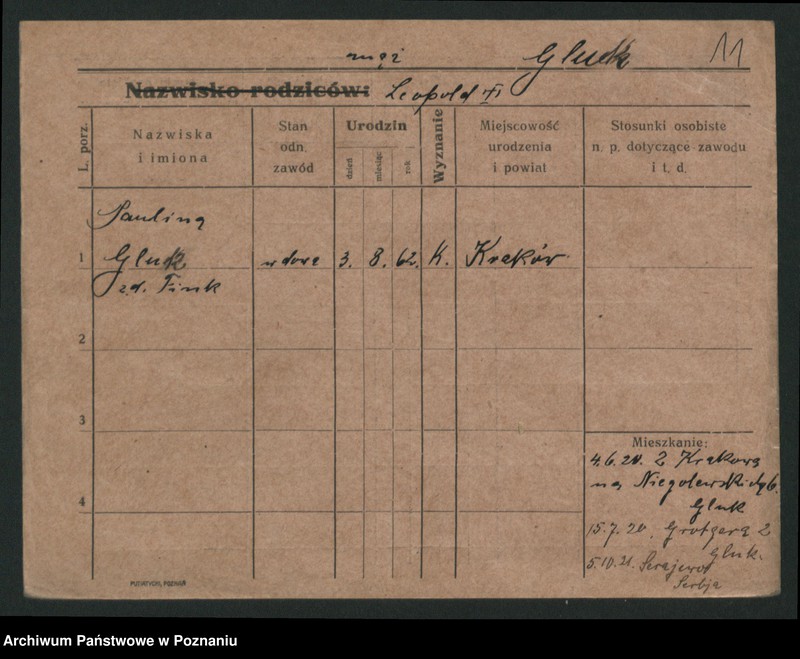 mąż Gluck 11
Nazwisko rodziców: Leopold
L. porz.
Nazwiska
i imiona
Stan
odn.
zawód
Urodzin
dzień
miesiąc
rok
Wyznanie
Miejscowość
urodzenia
i powiat
Stosunki osobiste
n. p. dotyczące zawodu
i t. d.
Paulina
1 Gluck wdowa 3. 8. 62. K. Kraków
zd. Fink
2
3
4
Mieszkanie:
4.6.20. Z Krakowa
na Niegolewskich 6.
Gluk
15.7.20. Grotgera 2
Gluk.
5.10.21. Serajewo
Serbja
PUTIATYCKI, POZNAŃ
Archiwum Państwowe w Poznaniu